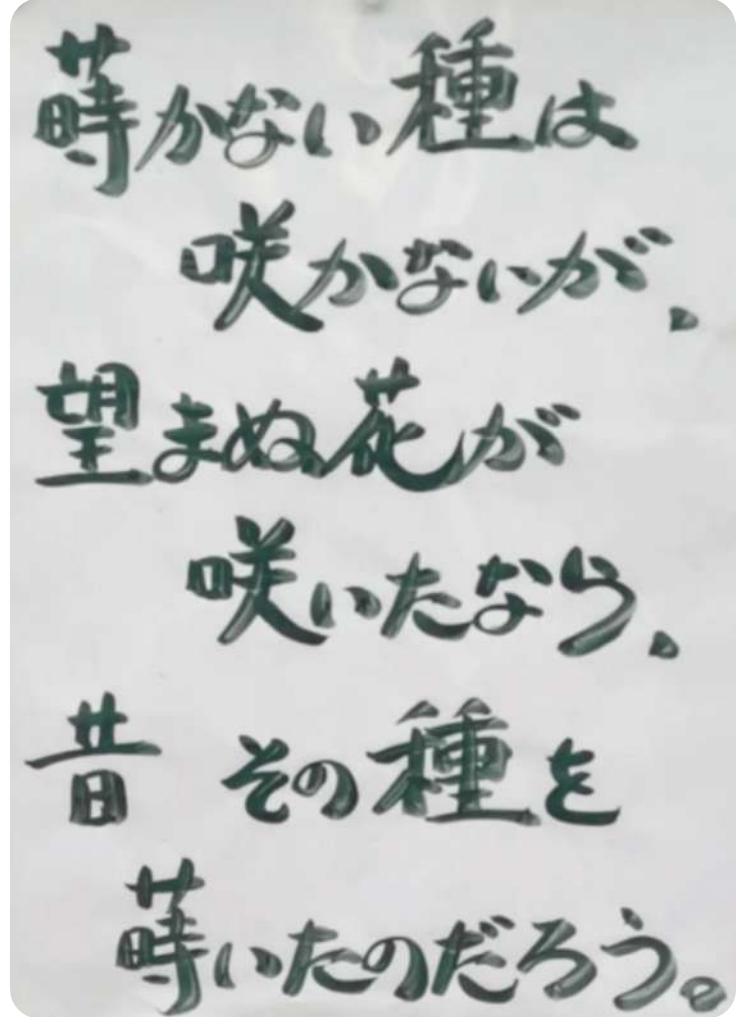 蒔かない種は
咲かないが、
望まぬ花が
咲いたなら、
昔 その種を
蒔いたのだろう。